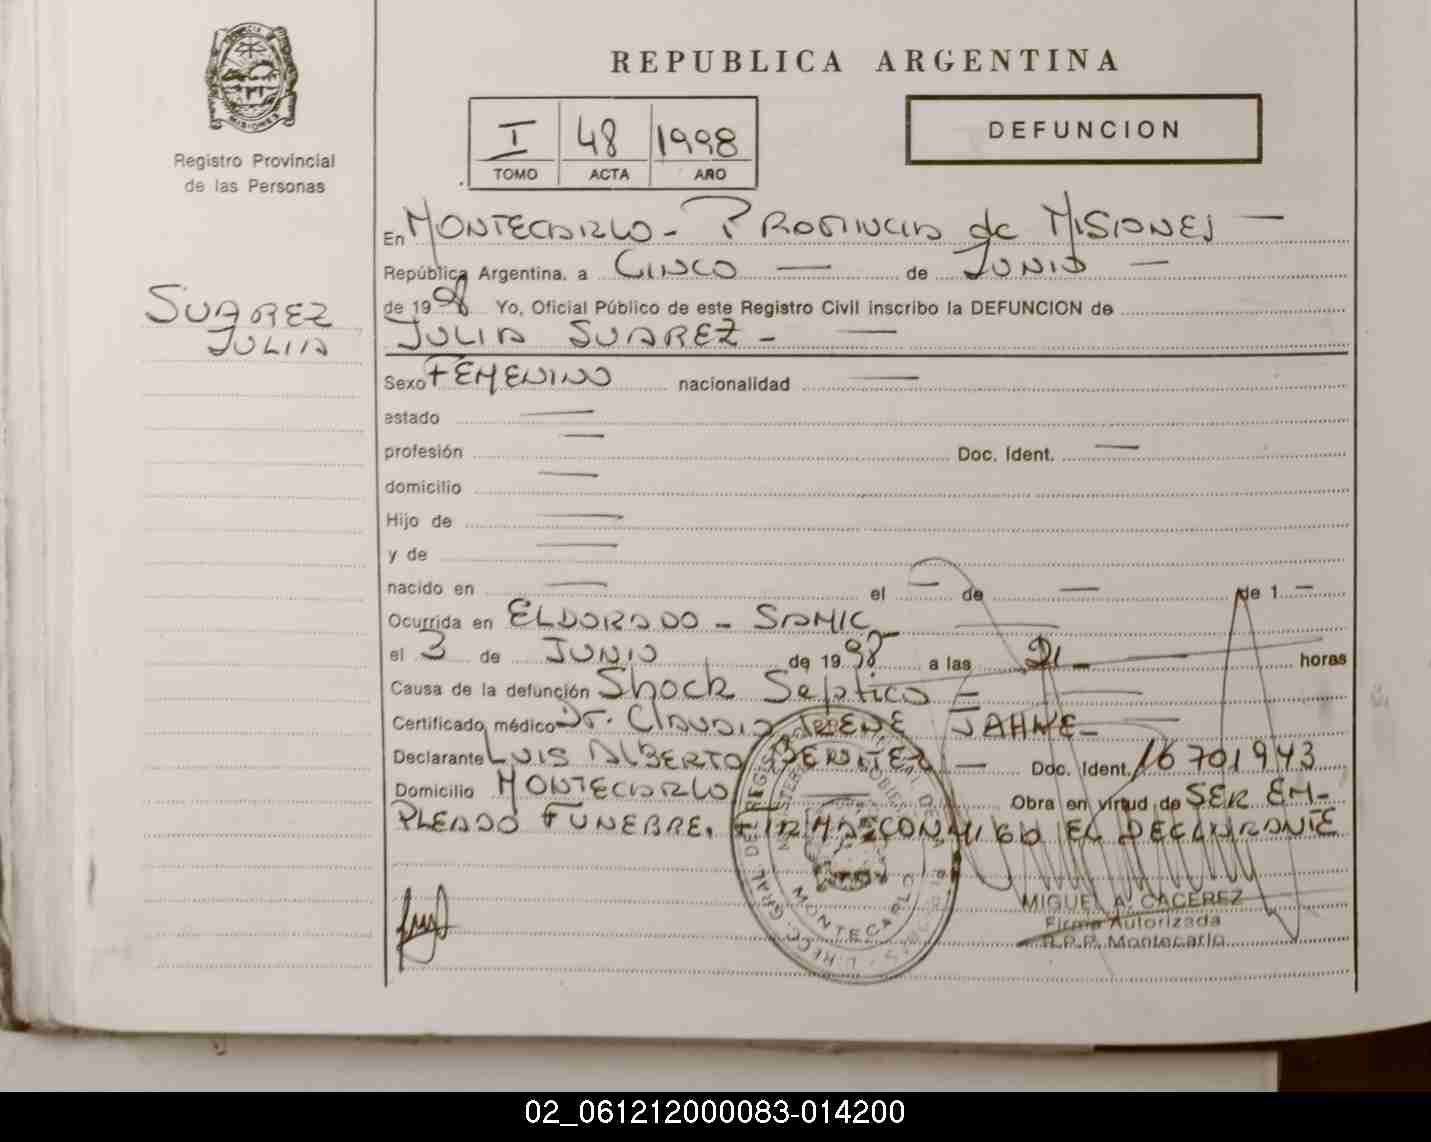 REPUBLICA ARGENTINA
DEFUNCION
I 48 1998
TOMO ACTA AÑO
MISIONES
Registro Provincial
de las Personas
SUAREZ
JULIA
En MONTECARLO - PROVINCIA de MISIONES —
República Argentina, a CINCO — de JUNIO —
de 1998 Yo, Oficial Público de este Registro Civil inscribo la DEFUNCION de
JULIA SUAREZ - —
Sexo FEMENINO nacionalidad —
estado —
profesión — Doc. Ident. —
domicilio —
Hijo de —
y de —
nacido en — el — de — de 1 —
Ocurrida en ELDORADO - SAMIC —
el 3 de JUNIO de 1998 a las 21 — horas
Causa de la defunción Shock Septico —
Certificado médico Dr. CLAUDIO IRENE JAHNE —
Declarante LUIS ALBERTO BENITEZ — Doc. Ident. 16701943
Domicilio MONTECARLO — Obra en virtud de SER EM-
PLEADO FUNEBRE. FIRMA CONMIGO EL DECLARANTE
MONTECARLO
MIGUEL A. CACEREZ
Firma Autorizada
R.P.P. Montecarlo
02_061212000083-014200